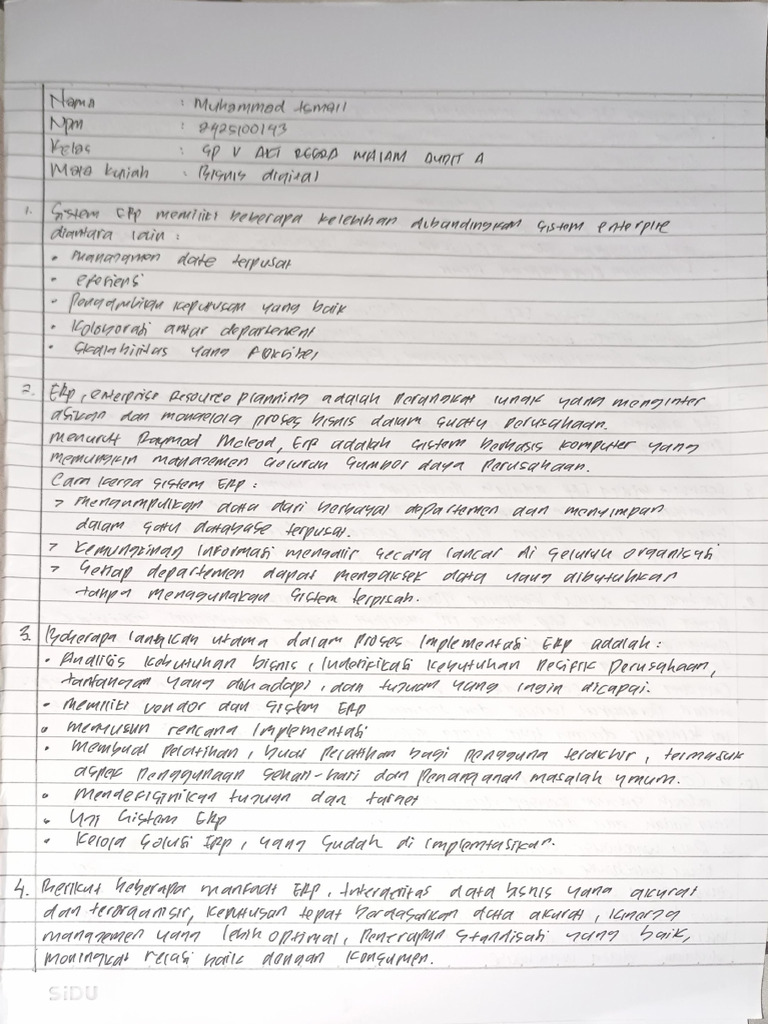 Nama : Muhammad Ismail
Npm : 2425100193
Kelas : SP V AKT REGB MALAM AUDIT A
Mata kuliah : Bisnis digital
1. Sistem ERP memiliki beberapa kelebihan dibandingkan sistem enterpire
diantara lain :
• Managemen data terpusat
• efesiensi
• Pengambilan keputusan yang baik
• Kolaborasi antar departement
• Skalabilitas yang Fleksibel
2. ERP, enterprise Resource planning adalah Perangkat lunak yang menginter
asikan dan mengelola proses bisnis dalam suatu perusahaan.
menurut Raymod Mcleod, ERP adalah sistem berbasis komputer yang
memungkin managemen seluruh sumber daya perusahaan.
Cara kerja sistem ERP :
> mengumpulkan data dari berbagai departemen dan menyimpan
dalam satu database terpusat.
> Kemungkinan informasi mengalir secara lancar di seluruh organisasi
> Setiap departemen dapat mengaksek data yang dibutuhkan
tanpa menggunakan sistem terpisah.
3. Beberapa langkah utama dalam proses implementasi ERP adalah :
• Analisis kebutuhan bisnis, kebutuhan Pesifik Perusahaan,
tantangan yang dihadapi, dan tujuan yang ingin dicapai.
• memiliki vendor dan sistem ERP
• menyusun rencana implementasi
• Membuat pelatihan, buat pelatihan bagi pengguna terakhir, termasuk
aspek penggunaan sehari-hari dan Penanganan masalah umum.
• Mendefisinikan tujuan dan target
• Uji Sistem ERP
• Kelola Solusi ERP, yang sudah di implemtasikan.
4. Berikut beberapa manfaat ERP, Intergritas data bisnis yang akurat
dan terorganisir, keputusan tepat berdasarkan data akurat, kinerja
managemen yang lebih optimal, Penerapan standisasi yang baik,
meningkat relasi baik dengan konsumen.
SIDU